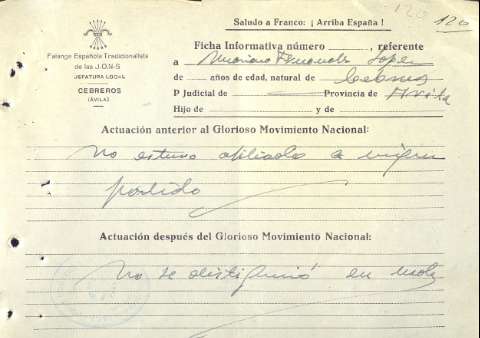 120
120
Saludo a Franco: ¡ Arriba España !
Falange Española Tradicionalista
de las J.O.N-S
JEFATURA LOCAL
CEBREROS
(ÁVILA)
Ficha Informativa número, referente
a Mariano Fernandez Lopez
de años de edad, natural de Cebreros
P Judicial de Provincia de Avila
Hijo de y de
Actuación anterior al Glorioso Movimiento Nacional:
No estuvo afiliado a ningun
partido
Actuación después del Glorioso Movimiento Nacional:
No se distinguió en nada